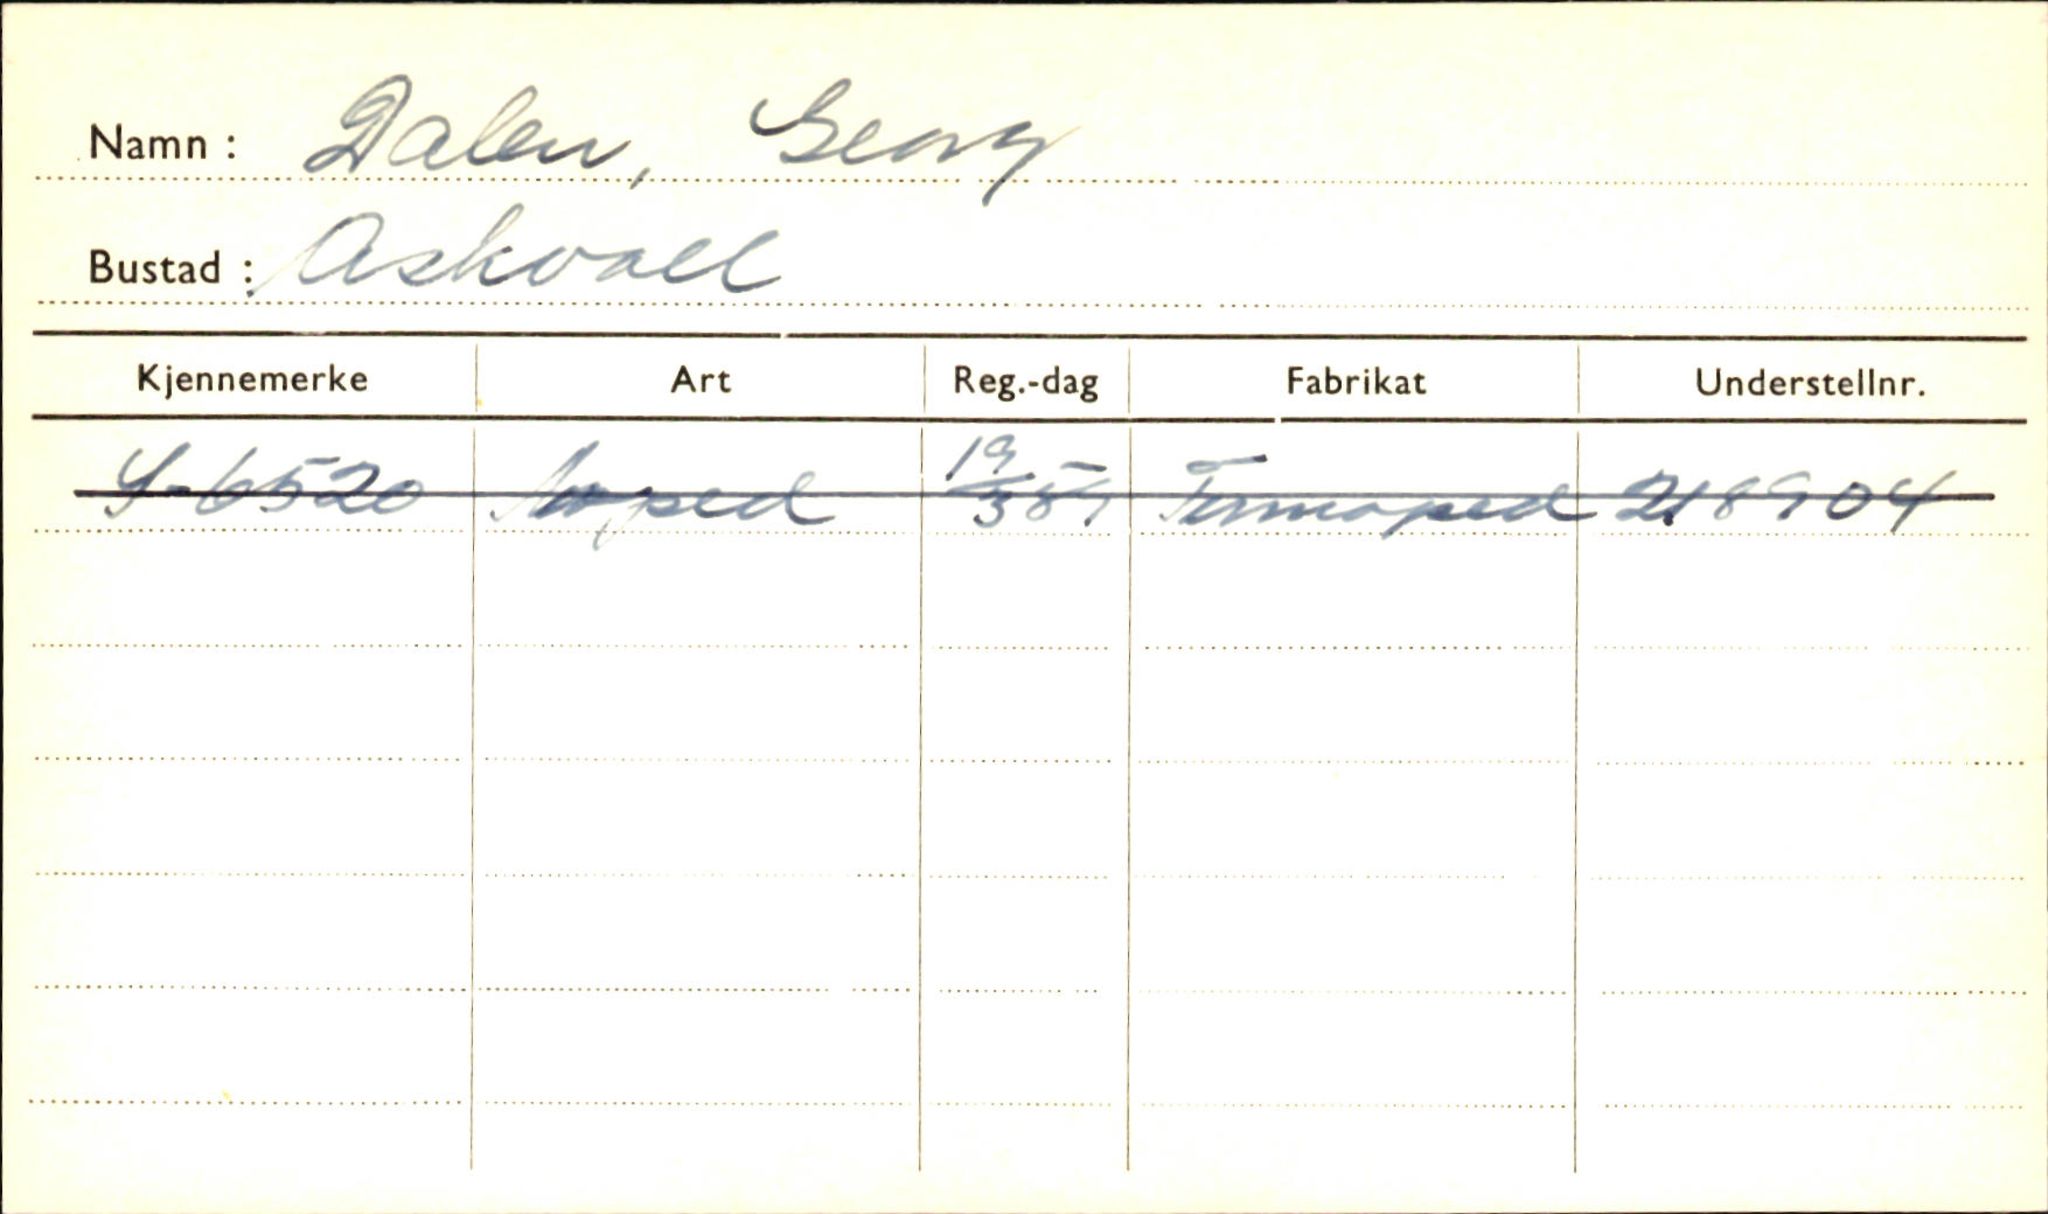 Namn : Dalen, Georg
Bustad : Askvoll
Kjennemerke Art Reg.-dag Fabrikat Understellnr.
S-6520 Moped 19/3 59 Termoped 218904